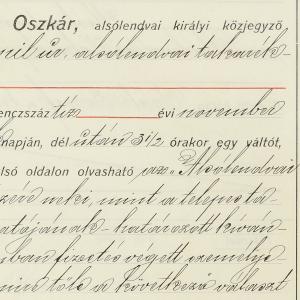 Oszkár, alsólendvai királyi közjegyző
úr, alsólendvai takarék-
enczszáz tíz évi november
napján, dél után 3 1/2 órakor egy váltót,
lső oldalon olvasható az „Alsólendvai
mint a telepes ta-
határozott kíván-
ban fizetés végett személye-
min tőle a következő választ